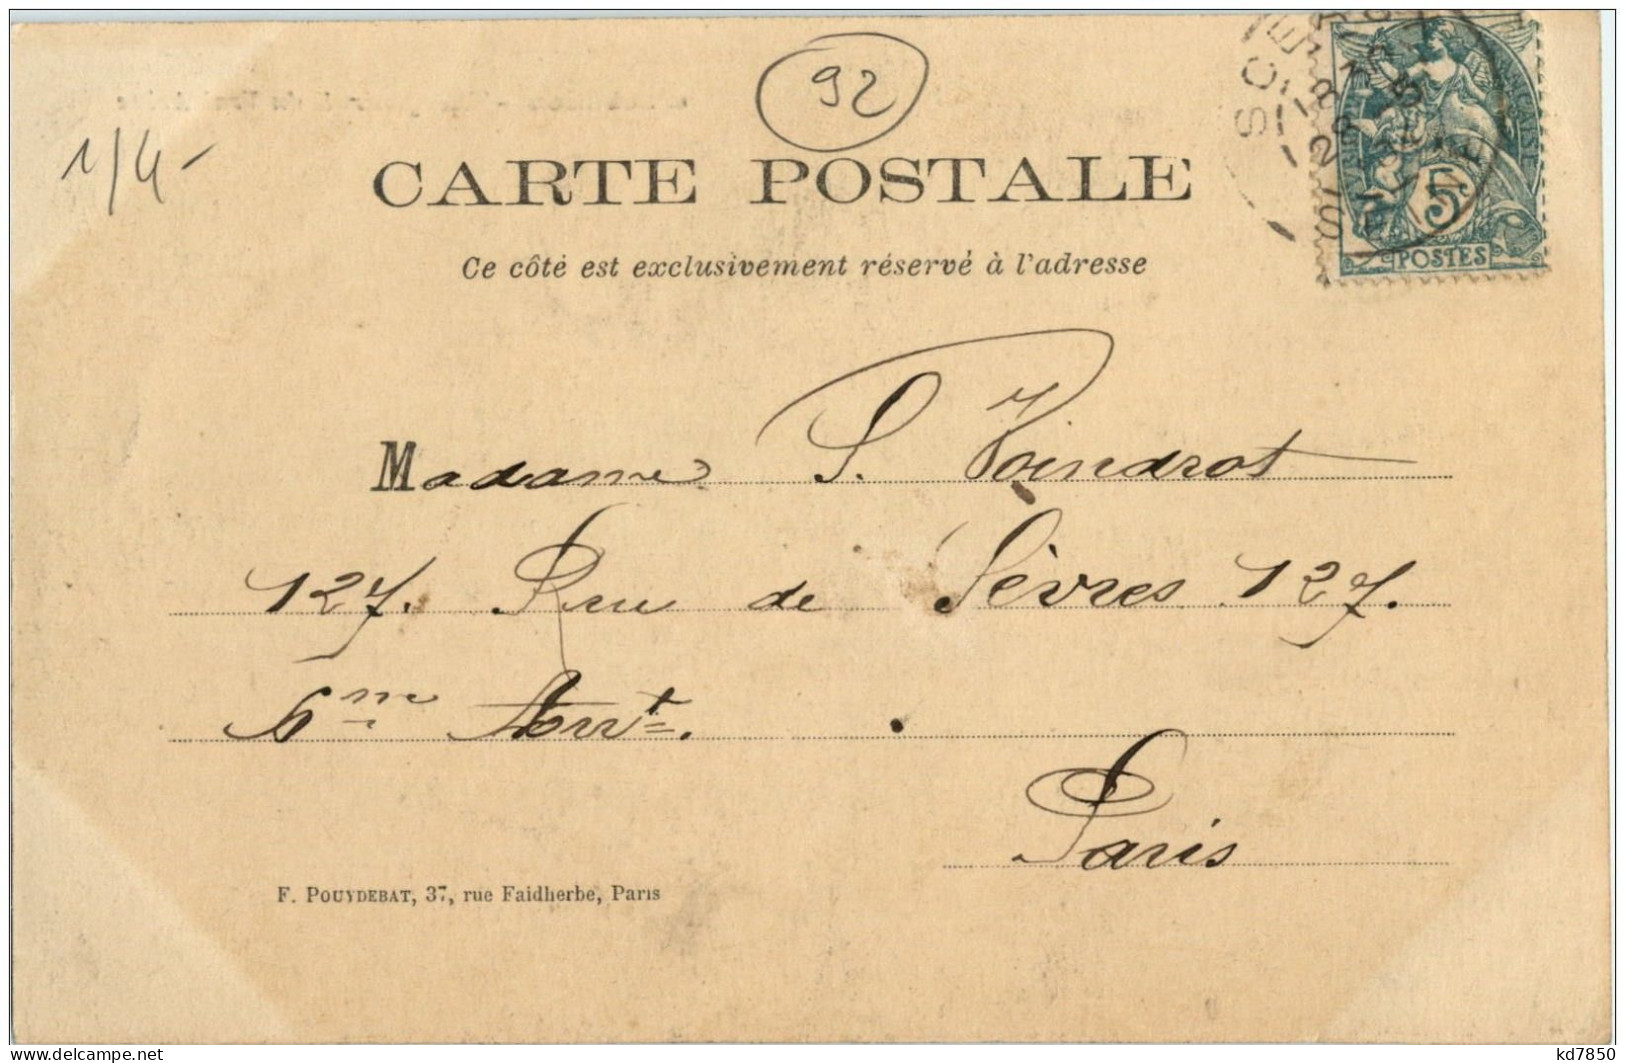 92
1/4-
CARTE POSTALE
Ce côté est exclusivement réservé à l'adresse
5
POSTES
Madame S. Voindrot
127. Rue de Sèvres 127.
6me Arrt.
Paris
F. POUYDEBAT, 37, rue Faidherbe, Paris
kd7850
www.delcampe.net